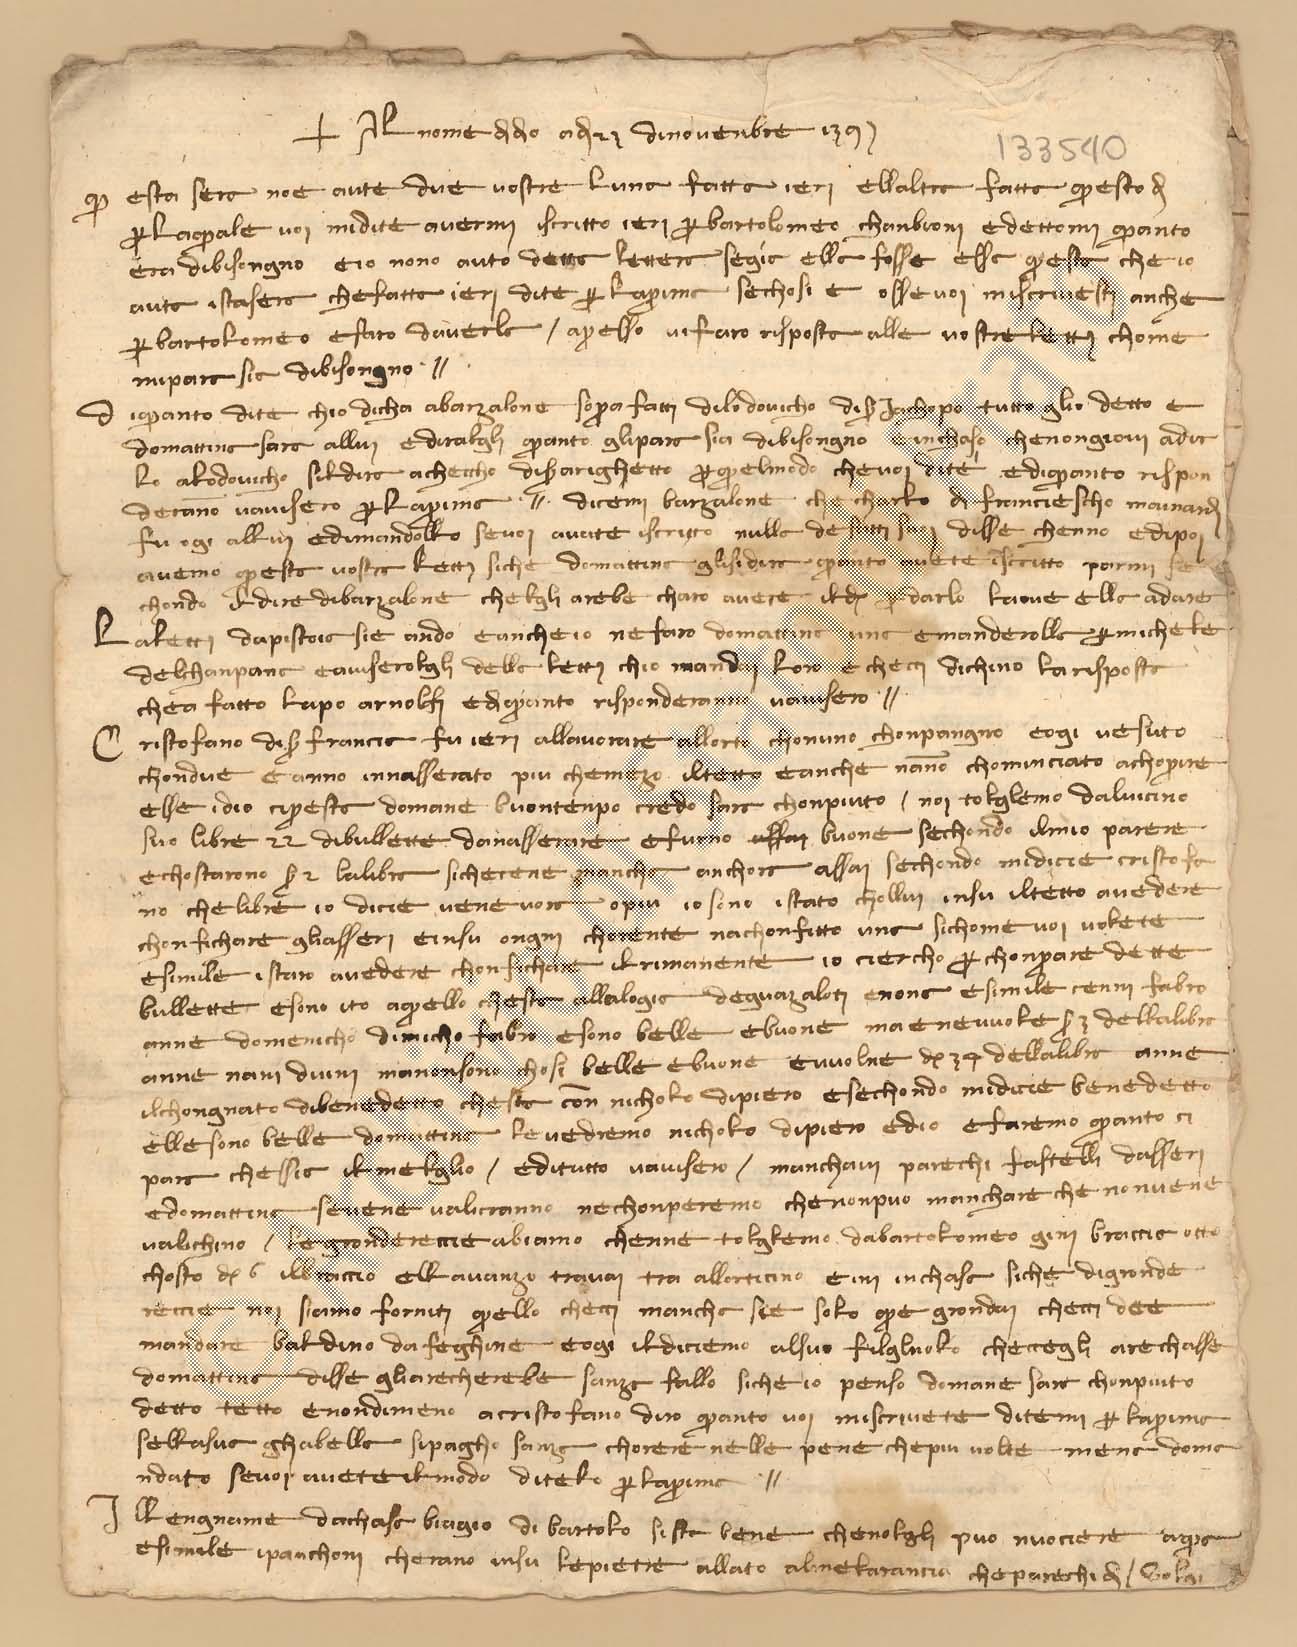 + Al nome di dio adi 23 di novenbre 1397
133540
questa sera noe aute due vostre l'una fatta ieri e ll'altra fatta questo dì
per la quale voi mi dite avermi iscritto ieri per bartolomeo chanbioni e dettomi quanto
era di bisongno e io nono auto detta lettera se già ella fosse essa questa che io
auta istasera che fatta ieri dite per la prima se chosì è o sse voi mi scrivesti anche
per bartolomeo e farò d'averla / apresso vi farò risposta alle vostre lettere chome
mi parà sia di bisongno //
di quanto dite ch'io dicha a barzalone sopra fatti di lodovicho di ser jachopo tutto gli ò detto e
domattina sarà a llui e diralgli quanto gli parà sia di bisongno e in chaso che non giovi a dir
lo a lodovicho si ldirà a checcho di ser arighetto per quel modo che voi dite e di quanto rispon
deranno v'aviserò per la prima // dicemi barzalone che charlo di franciescho mainardi
fu ogi a llui e dimandollo se voi avate iscritto nulla de fatti suoi disse che nno e dipoi
avemo questa vostra lettera sì che domattina gli si dirà quanto avete iscritto parmi se
chondo il dire di barzalone che lgli arebe charo avere il dì per darlo laove ella a dare
La lettera da pistoia si è andò e anche io ne farò domattina una e manderolla per michele
del chanpana e aviserolgli della lettera ch'io mandai loro e che cci dichino la risposta
che a fatto lapo arnolfi e di quanto risponderanno v'aviserò //
Cristofano di ser francia fu ieri a llavorare all'orto chon uno chonpangno e ogi v'è suto
chon due e anno innasserato più che mezo il tetto e anche n'anno chominciato a choprire
e sse idio ci presta domane buon tenpo credo sarà chonpiuto / noi tolglemo dal vicino
suo libre 22 di bullette da inasserare e furno buone sechondo il mio parere
e chostarono s 2 la libra sì che ce ne mancha anchora assai sechondo mi dicie cristofa
no che libre 10 dicie ve ne vorà o più io sono istato cho llui in su il tetto a vedere
chonfichare gli asseri e in su ongni chorente n'a chonfitto una sì chome voi volete
e simile istarò a vedere chonfichare il rimanente io ciercho per chonprare dette
bullette e sono ito a quello resta alla logia de guazaloti e nona e simile cenni fabro
anne domenicho di micho fabro e sono belle e buone ma e ne vuole s 3 della libra
anne nani duini ma non sono chosì belle e buone e vuolne d 34 della libra anne
il chongnato di benedetto che sta con nicholò di piero e sechondo mi dicie benedetto
elle sono belle domattina le vedremo nicholò di piero ed io e faremo quanto ci
parà che ssia il melglio / e di tutto v'aviserò / manchavi parechi fastelli d'asseri
e domattina se ve ne valicranno ne chonperemo che non può manchare che non ve ne
valichino / le gronderecie abiamo che nne tolglemo da bartolomeo gini braccia otto
chosto d 6 il braccio e ll'avanzo travai tra all'orticino e ivi in chasa sì che di gronde
reccie noi siamo forniti quello checci mancha si è solo quegrondai checci dee
mandare baldino da feghine e ogi il diciemo al suo filgluolo che ccegli arechasse
domattina disse gli arecherebe sanza fallo sì che io penso domane sarà chonpiuto
detto tetto e nondimeno a cristofano dirò quanto voi mi scrivete ditemi per la prima
se lla sua ghabella si pagho sanza chorere nelle pene che più volte me n'a doma
ndato se voi avete il modo ditelo per la prima //
Il lengname da chasa biagio di bartolo si sta bene che nolgli può nuociere aqua
e simile i panchoni ch'erano in su le pietre allato al melarancio che parechi dì / Volgi